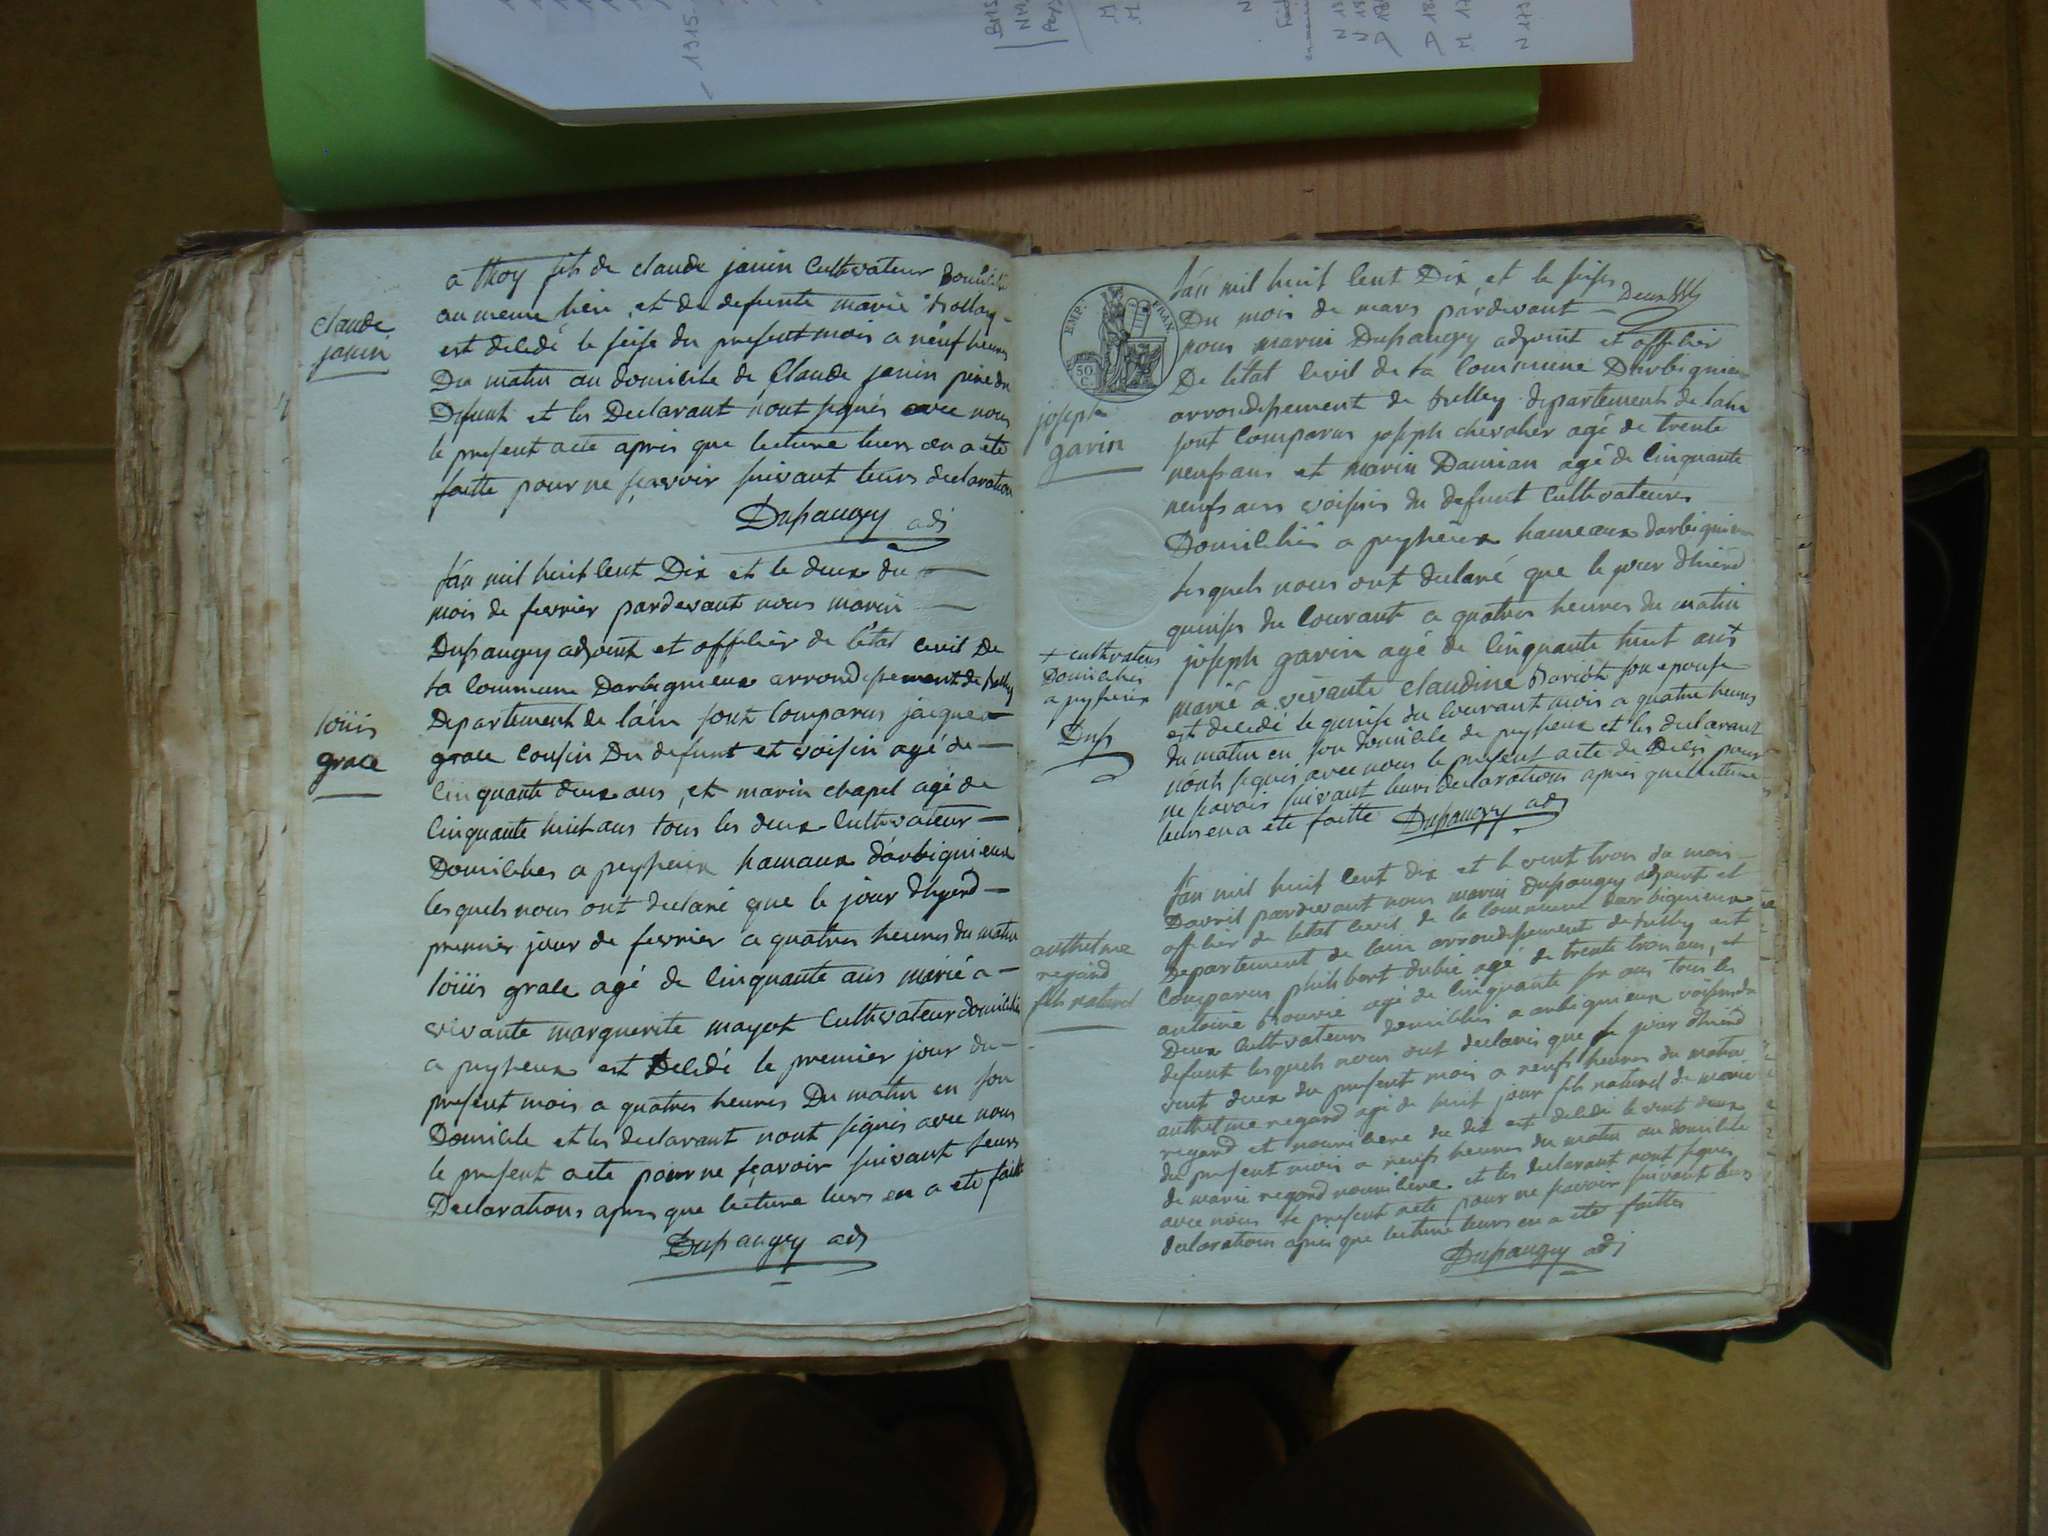 a thoy fils de claude janin cultivateur domicilié
au meme lieu, et de defunte marie
est decedé le seise du present mois a neuf heures
Du matin au domicile de Claude janin pere du
Defunt et les Declarant nont signés avec nous
le present acte apres que lecture leurs en a ete
faitte pour ne sçavoir suivant leurs declaration
Dupaugey adj
claude
janin
lan mil huit Cent Dix et le deux du
mois de fevrier pardevant nous marin
Dupaugey adjoint et officier de létat civil De
la Commune Darbignieux arrondissement de belley
Departement de láin sont Comparus jacques
grace cousin Du defunt et voisin agé de
Cinquante deux ans, et marin chapel agé de
Cinquante huit ans tous les deux Cultivateur
Domiciliés a peyzieux hamaux dárbignieux
lesquels nous ont declaré que le jour dhyerd
premier jour de fevrier a quatres heures du matin
loüis grace agé de Cinquante ans marié a
vivante marguerite mayot Cultivateur domicilié
a peyzieux est Decedé le premier jour du
present mois a quatres heures Du matin en son
Domicile et les declarant nont signés avec nous
le present acte pour ne sçavoir suivant leurs
Declarations apres que lecture leurs en a ete faitte
Dupaugey adj
loüis
grace
EMP. FRAN.
50
C.
lán mil huit Cent Dix, et le seise
Du mois de mars pardevant
nous marin Dupaugey adjoint et officier
De létat Civil de la Commune Darbignieux
arrondissement de belley departement de láin
sont Comparus joseph chevalier agé de trente
neufs ans et marin Damian agé de Cinquante
neufs ans voisins du defunt Cultivateurs
Domiciliés a peyzieux hameaux darbignieux
lesquels nous ont declaré que le jour dhierd
quinse du Courant a quatres heures du matin
joseph gavin agé de Cinquante huit ans +
marié a vivante Claudine son epouse
est decedé le quinse du Courant mois a quatre heures
du matin en son domicile de peyzieux et les declarant
nonts signés avec nous le present acte de Decés pour
ne sçavoir suivant leurs declarations apres que lecture
leurs en a ete faitte Dupaugey adj
joseph
gavin
+ cultivateur
Domicilié
a peyzieux
Dup
lán mil huit Cent dix et le vent trois du mois
Davril pardevant nous marin Dupaugey adjoint et
officier de létat Civil de la Commune Darbignieux
Departement de lain arrondissement de belley ont
Comparus philibert dubié agé de trente trois ans, et
antoine agé de Cinquante six ans tous les
Deux Cultivateurs domiciliés a arbignieux voisins du
defunt lesquels nous ont declarés que le jour dhierd
vent deux du present mois a neufs heures du matin
anthelme regard agé de huit jour fils naturel de marie
regard et nourricere du dit est decedé le vent deux
du present mois a neufs heures du matin au domicile
de marie regard nourricere et les declarant nont signés
avec nous le present acte pour ne sçavoir suivant leurs
declaration apres que lecture leurs en a ete faittes
Dupaugey adj
anthelme
regard
fils naturel
1915